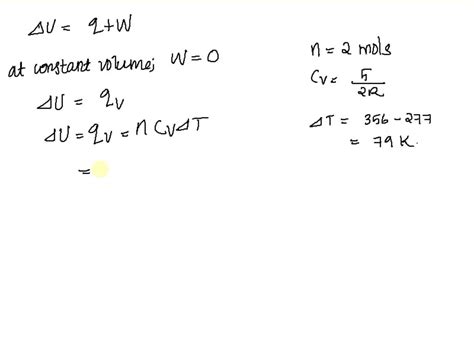 ΔU = q+W
at constant volume; W = 0
ΔU = qv
ΔU = qv = n Cv ΔT
=
n = 2 mols
Cv = 5/2R
ΔT = 356 - 277
= 79 K.